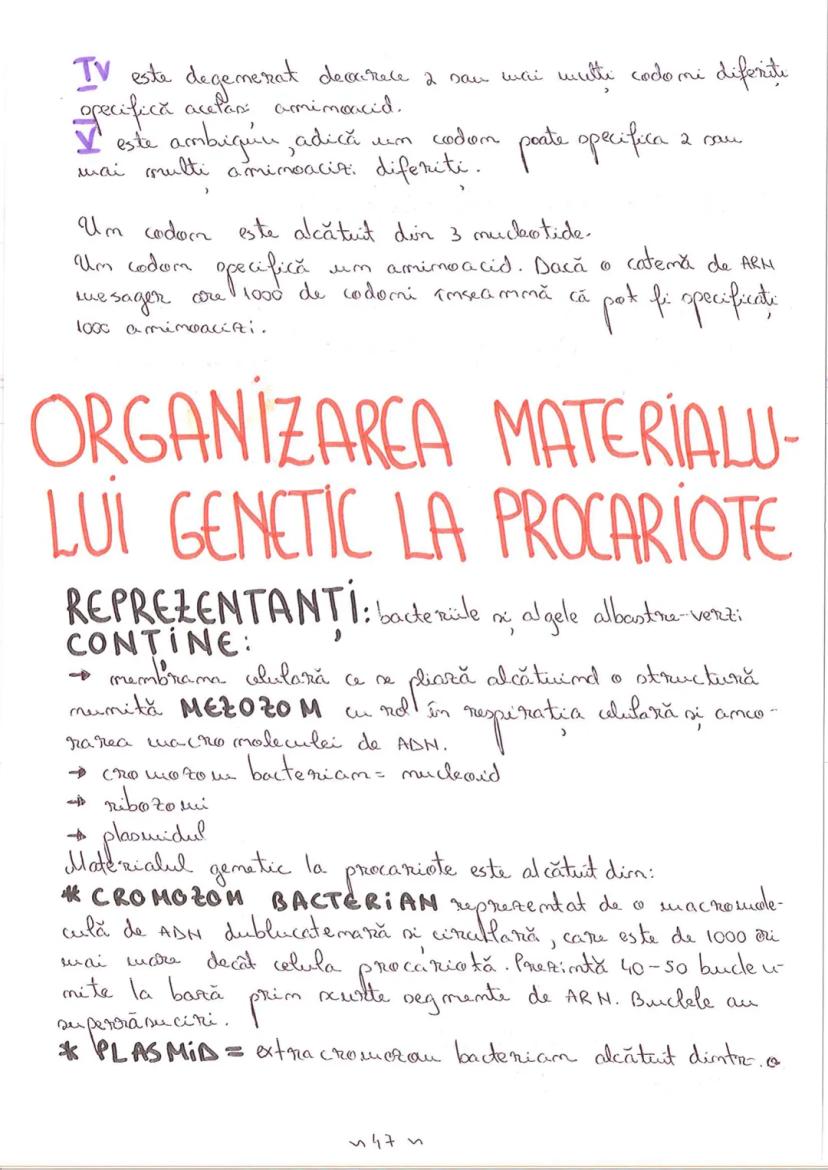 IV este degenerat deoarece 2 sau mai mulți codoni diferiți
specifică același aminoacid.
V este ambiguu, adică un codon poate specifica 2 sau
mai mulți aminoacizi diferiți.
Un codon este alcătuit din 3 nucleotide.
Un codon specifică un aminoacid. Dacă o catenă de ARN
mesager are 1000 de codoni înseamnă că pot fi specificați
1000 aminoacizi.
ORGANIZAREA MATERIALU-
LUI GENETIC LA PROCARIOTE
REPREZENTANȚI: bacteriile și algele albastre-verzi
CONȚINE:
→ membrana celulară ce se pliază alcătuind o structură
numită MEZOZOM cu rol în respirația celulară și anco-
rarea macromoleculei de ADN.
→ cromozom bacterian = nucleoid
→ ribozomi
→ plasmidul
Materialul genetic la procariote este alcătuit din:
* CROMOZOM BACTERIAN reprezentat de o macromole-
culă de ADN dublucatenară și circulară, care este de 1000 ori
mai mare decât celula procariotă. Prezintă 40-50 bucle u-
nite la bază prin scurte segmente de ARN. Buclele au
superrăsuciri.
* PLASMID = extracromozom bacterian alcătuit dintr-o
~ 47 ~